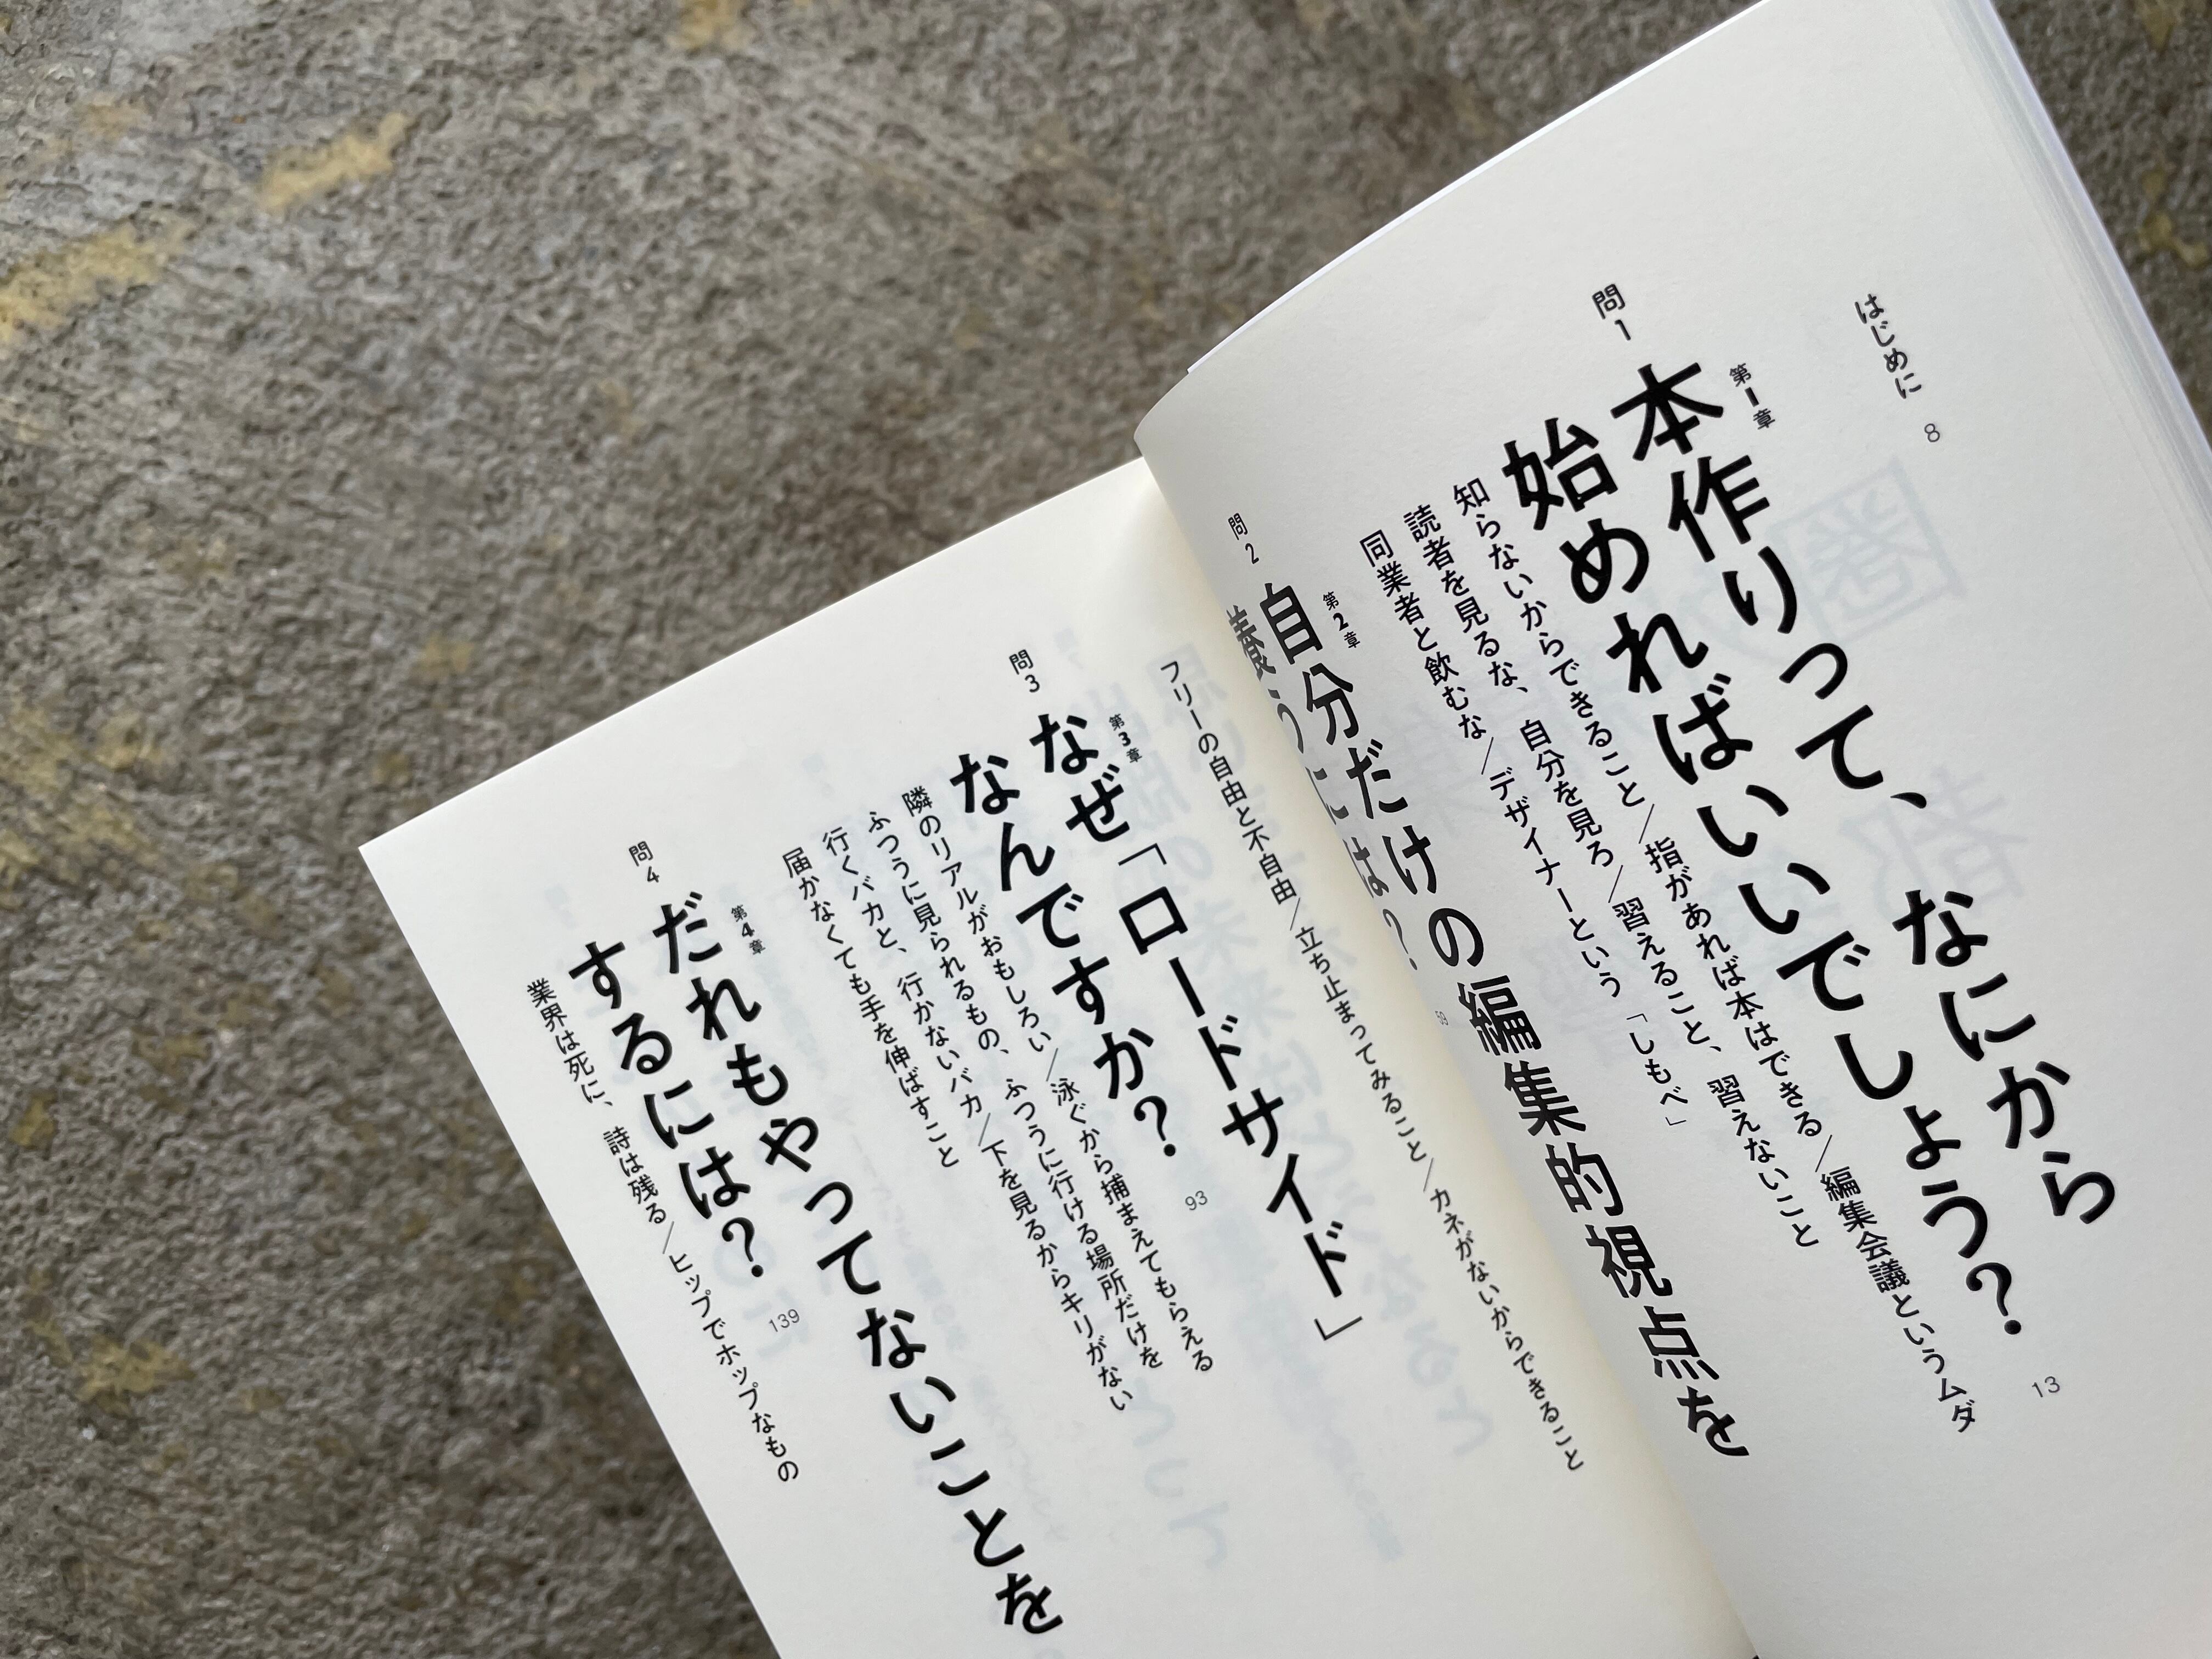 はじめに 8
第1章
問1 本作りって、なにから
始めればいいでしょう？ 13
知らないからできること／指があれば本はできる／編集会議というムダ
読者を見るな、自分を見ろ／習えること、習えないこと
同業者と飲むな／デザイナーという「しもべ」
第2章
問2 自分だけの編集的視点を
養うには？ 59
フリーの自由と不自由／立ち止まってみること／カネがないからできること
第3章
問3 なぜ「ロードサイド」
なんですか？ 93
隣のリアルがおもしろい／泳ぐから捕まえてもらえる
ふつうに見られるもの、ふつうに行ける場所だけを
行くバカと、行かないバカ／下を見るからキリがない
届かなくても手を伸ばすこと
第4章
問4 だれもやってないことを
するには？ 139
業界は死に、詩は残る／ヒップでホップなもの